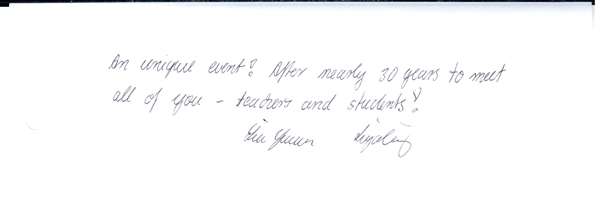 An unique event? After nearly 30 years to meet
all of you - teachers and students?